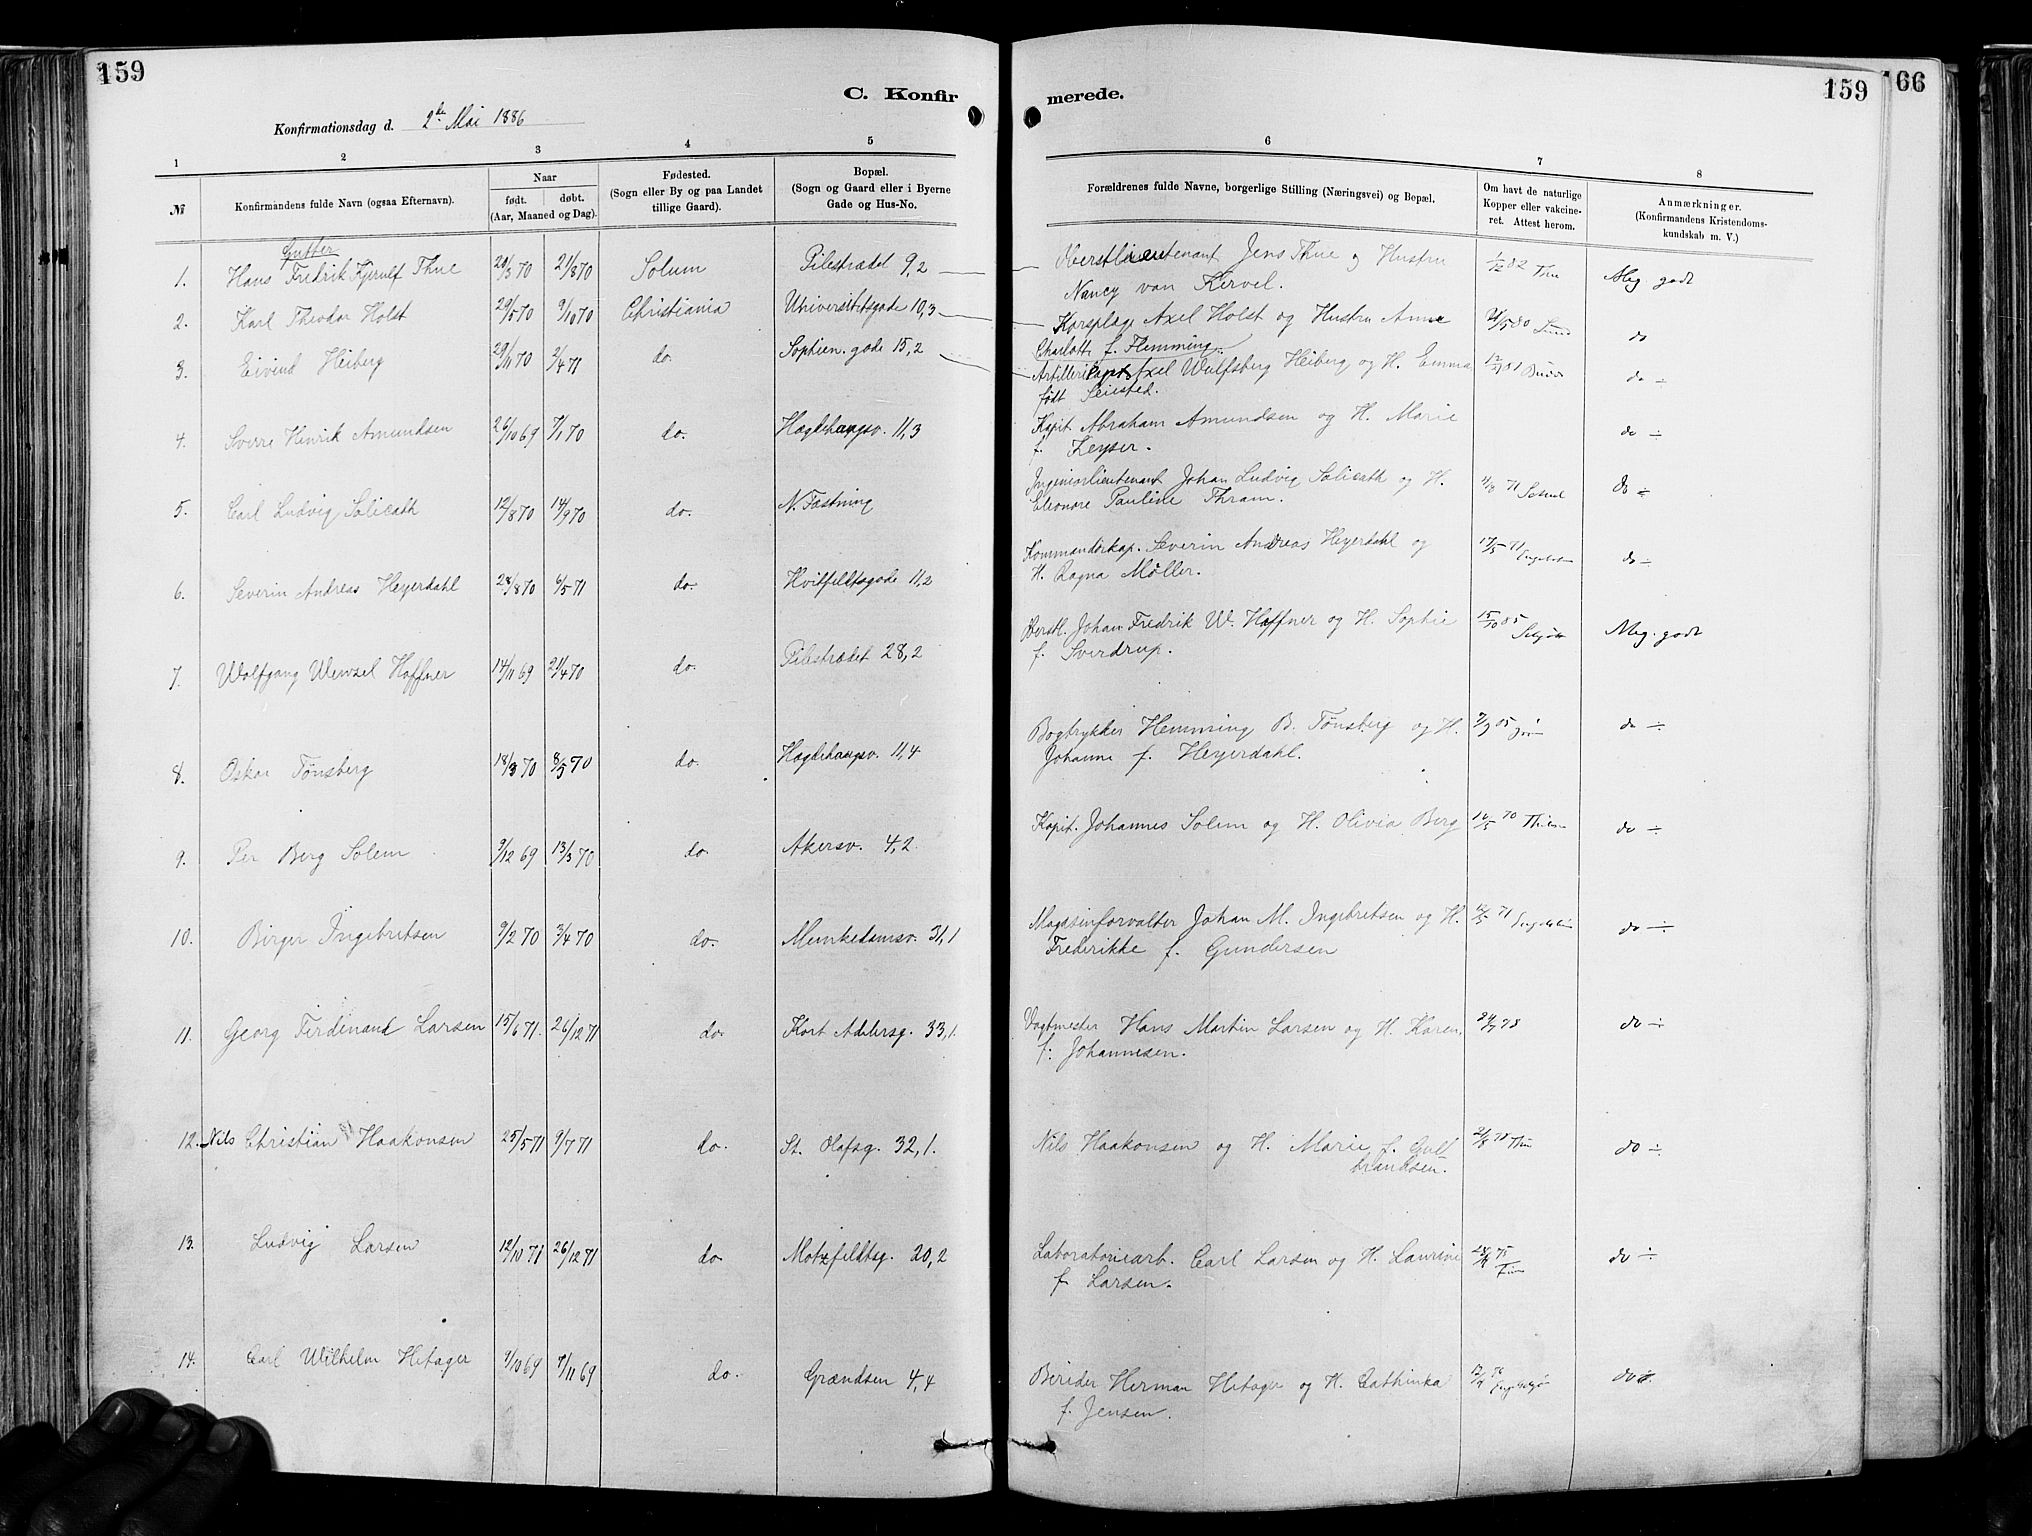 159
C. Konfir
merede.
159
166
Konfirmationsdag d. 2de Mai 1886
1 2 3 4 5 6 7 8
№ Konfirmandens fulde Navn (ogsaa Efternavn).
Naar
født. døbt.
(Aar, Maaned og Dag).
Fødested.
(Sogn eller By og paa Landet
tillige Gaard).
Bopæl.
(Sogn og Gaard eller i Byerne
Gade og Hus-No.
Forældrenes fulde Navne, borgerlige Stilling (Næringsvei) og Bopæl.
Om havt de naturlige
Kopper eller vakcine-
ret. Attest herom.
Anmærkninger.
(Konfirmandens Kristendoms-
kundskab m. V.)
Gutter
1. Hans Fredrik Kjerulf Thue 20/3 70 21/8 70 Solum Pilestrædet 9,2 Oberstlieutenant Jens Thue og Hustru
Nancy van Kervel. 1/12 82 Meg. godt
2. Karl Theodor Holst 29/5 70 9/10 70 Christiania Universitetsgade 10,3 Korpslæge Axel Holst og Hustru Anne
Charlotte f. Flemming. 21/5 80 do
3. Eivind Heiberg 29/11 70 2/4 71 do. Sophien.gade 15,2 Artillericapt. Axel Wulfsberg Heiberg og H. Emma
født Seiersted. do ÷
4. Sverre Henrik Amundsen 26/10 69 7/1 70 do. Hægdehaugsv. 11,3 Kapit. Abraham Amundsen og H. Marie
f. Keyser. do ÷
5. Carl Ludvig Solicath 12/8 70 14/9 70 do. N. Fæstning Ingeniørlieutenant Johan Ludvig Solicath og H.
Eleonore Pauline Thram. 11/8 71 do ÷
6. Severin Andreas Heyerdahl 28/8 70 6/5 71 do. Hvitfeldtsgade 11,2 Kommandørkap. Severin Andreas Heyerdahl og
H. Ragna Møller. 17/5 71 do ÷
7. Wolfgang Wenzel Haffner 14/11 69 21/4 70 do. Pilestrædet 28,2 Oberstl. Johan Fredrik W. Haffner og H. Sophie
f. Sverdrup. 15/10 85 Meg. godt
8. Oskar Tønsberg 18/3 70 8/5 70 do. Hægdehaugsv. 11,4 Bogtrykker Hemming B. Tønsberg og H.
Johanne f. Heyerdahl. 7/9 85 do ÷
9. Per Berg Solem 9/12 69 13/3 70 do. Akersv. 4,2 Kapit. Johannes Solem og H. Olivia Berg do ÷
10. Birger Ingebretsen 9/2 70 3/4 70 do. Munkedamsv. 31,1 Magasinforvalter Johan M. Ingebretsen og H.
Frederikke f. Gundersen 12/5 71 do ÷
11. Georg Ferdinand Larsen 15/6 71. 26/12 71 do. Kort Adelersg. 33,1. Vagtmester Hans Martin Larsen og H. Karen
f: Johannesen. do ÷
12. Nils Christian Haakonsen 25/5 71 9/7 71 do. St. Olafsg. 32,1. Nils Haakonsen og H. Marie f. Gul
brandsen. do ÷
13. Ludvig Larsen 12/10 71 26/12 71 do. Motzfeldtsg. 20,2 Laboratoriearb. Carl Larsen og H. Laurine
f. Larsen. do ÷
14. Carl Wilhelm Hetager 9/10 69 7/11 69 do. Grændsen 4,4 Berider Herman Hetager og H. Cathinka
f. Jensen. do